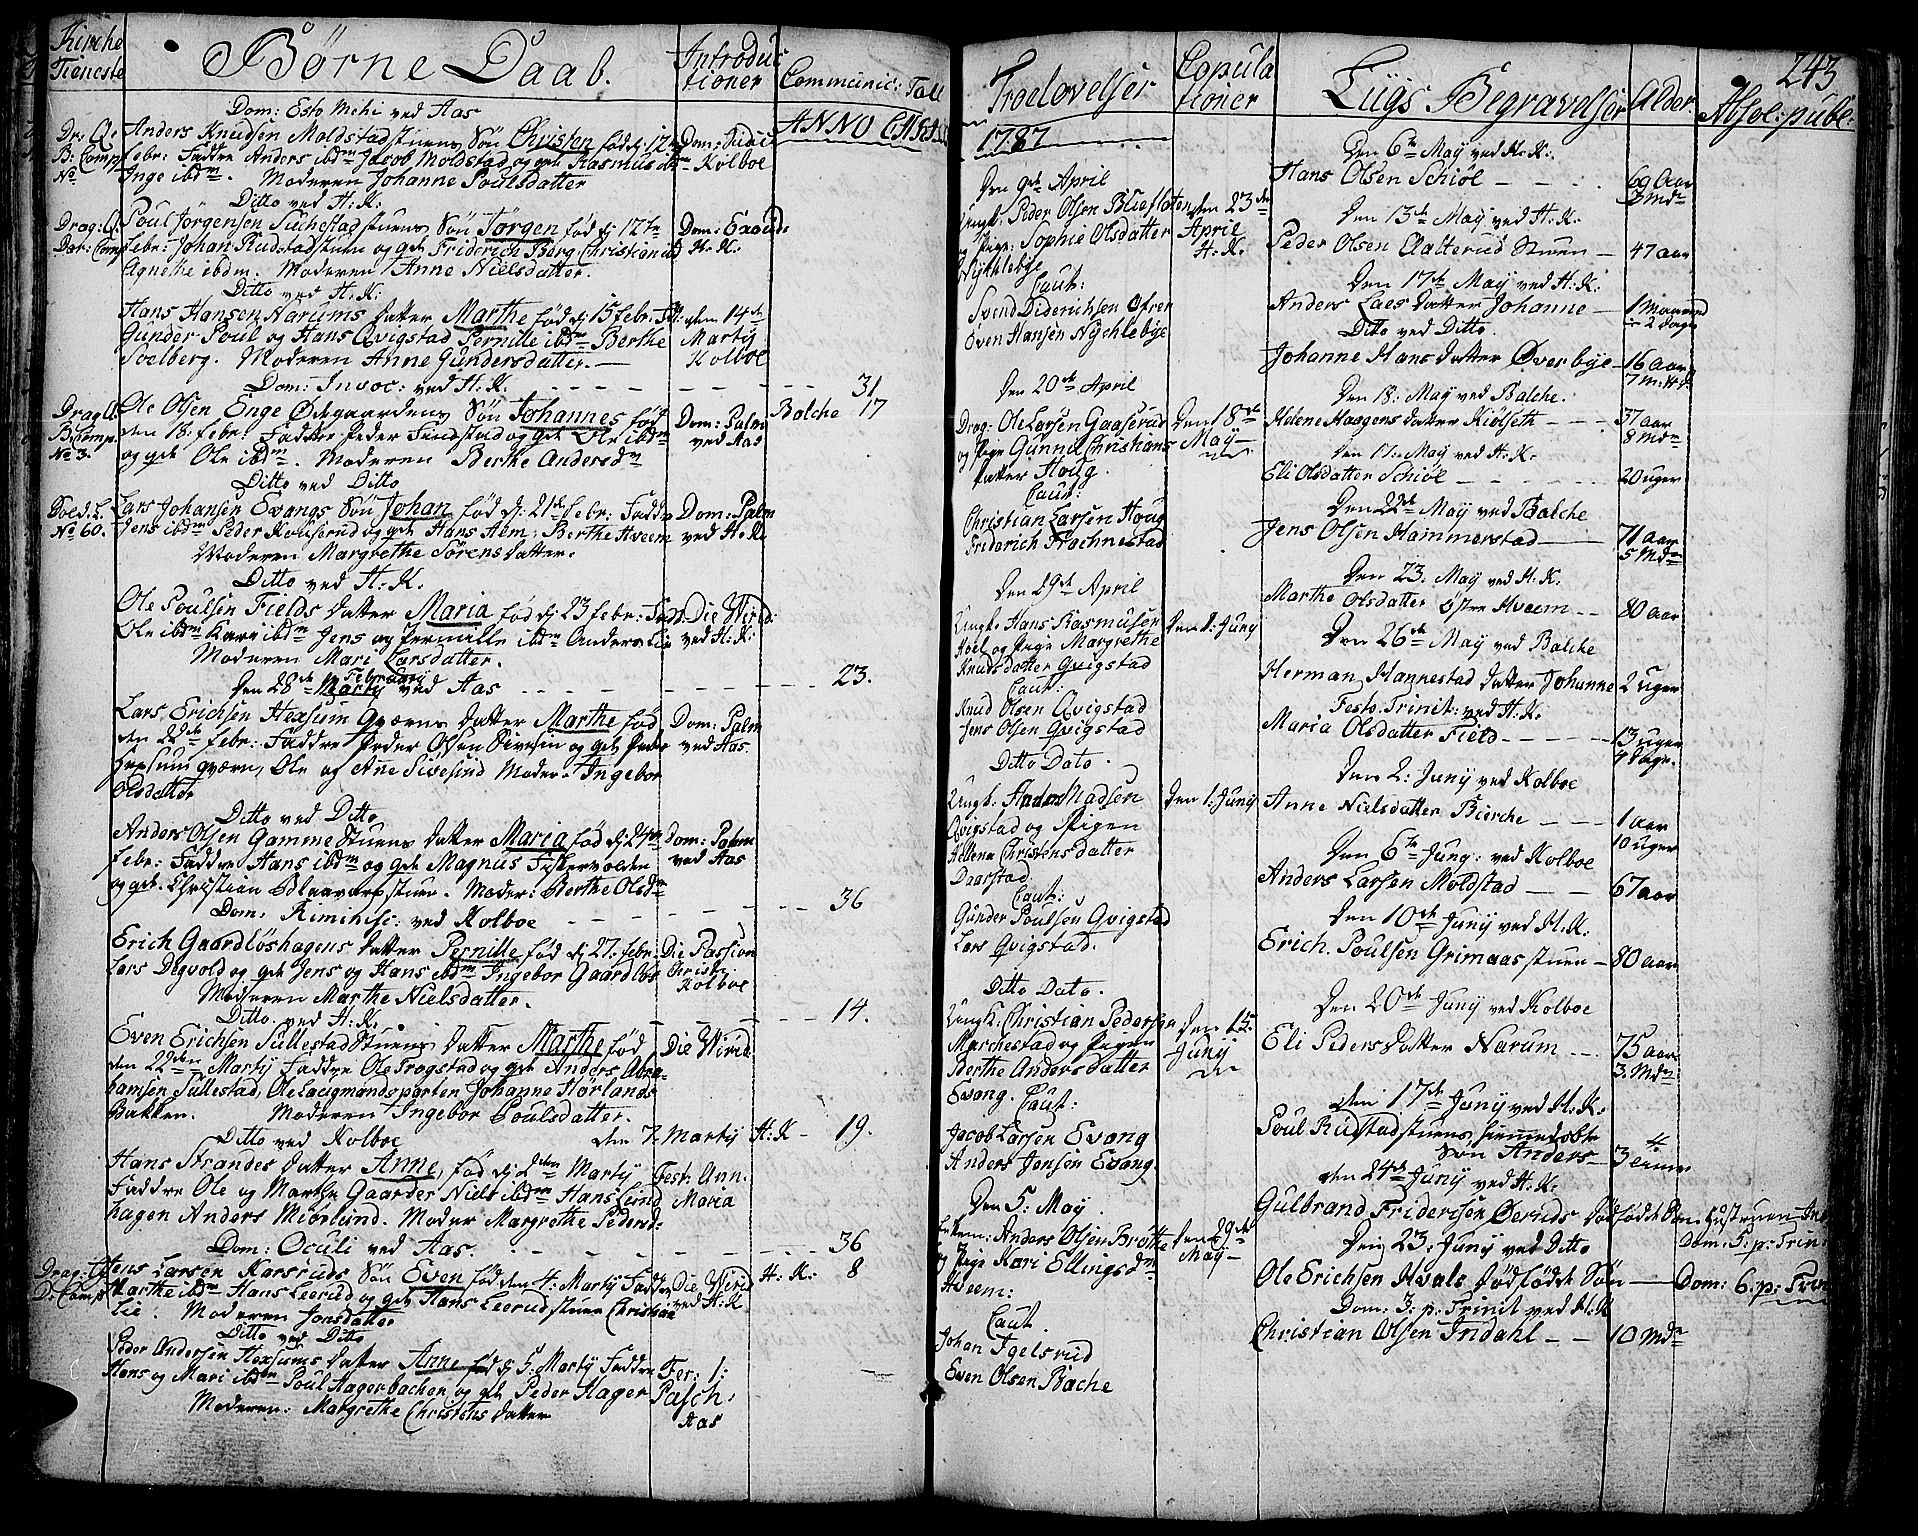 Kirche
Tieneste
Børne Daab.
Introduc
tioner
Communic: Tall
ANNO CHRI
Dom: Esto Mihi ved Aas
Dr: Qv:
B: Comp
No
Anders Knudsen Moldstadstuens Søn Christen fød d: 12
febr: Faddre Anders ibdm Jacob Moldstad og gde Rasmus ibdm
Inge ibdm. Moderen Johanne Poulsdatter
Dom:
Kolboe
Ditto ved H: K.
Drag: Q:
Dat: Comp
Poul Jørgensen Suchestadstuens Søn Jørgen fød d: 12te
febr: Johan Rudstadstuen og gde Friderich Berg Christian
Agnethe ibdm. Moderen Anne Nielsdatter.
Dom: Exaudi
H: K.
Ditto ved H: K:
Hans Hansen Narums datter Marthe fød d: 15 febr: F
Gunder Poul og Hans Qvigstad Pernille ibdm Berthe
Soelberg. Moderen Anne Gundersdatter.
den 14de
Martÿ
Kolboe
Dom: Invoc: ved H: K. 31
Drag: Q.
B: Comp.
No 3.
Ole Olsen Enge Ødegaardens Søn Johannes fød
den 18. febr: Faddre Peder Sindstad og gde Ole ibdm
og gde Ole ibdm. Moderen Berthe Andersdr
Dom: Palm
ved Aas
Balche 17
Ditto ved Ditto
Soed: L.
No 60.
Lars Johansen Evangs Søn Johan fød d: 21de febr: Faddre
Jens ibdm Peder Kouserud og gde Hans Alm: Berthe Hveem
Moderen Margrethe Sørensdatter.
Dom: Palm
ved H: K.
Ditto ved H: K.
Ole Poulsen Fields datter Maria fød d: 23 febr: Fadd:
Ole ibdm Kari ibdm Jens og Pernille ibdm Anders Lie
Moderen Mari Larsdatter.
Die Virid:
ved H: K:
Den 28de Februarÿ ved Aas 23.
Lars Erichsen Hexsum qværns datter Marthe fød
den 22de febr: Faddre Peder Olsen Sivesin og gde Peder
Hexsum qværn, Ole og Anne Sivesind Moder: Ingebor
Olsdatter
Dom: Palm
ved Aas
Ditto ved Ditto
Anders Olsen Gamme Stuens datter Maria fød d: 24de
febr: Faddre Hans ibdm og gde Magnus Fiskervolden
og gde Christian stuen. Moder: Berthe Olsdr
Dom: Palm
ved Aas
Dom: Riminisc: ved Kolboe 36
Erich Gaardløshagens datter Pernille fød d: 27. febr:
Lars Degvold og gde Jens og Hans ibdm Ingebor Gaardløs
Moderen Marthe Nielsdatter.
Die Passion
Christi
Kolboe
Ditto ved H: K. 14.
Even Erichsen Sullestad Stuens datter Marthe fød
den 22den Martÿ Faddre Ole Trogstad og gde Anders Abra-
hamsen Sullestad, Ole Laugmandsporten Johanne Hørlands
Bakken. Moderen Ingebor Poulsdatter.
Die Virid
Ditto ved Kolboe den 7. Martÿ H: K 19.
Hans Strandes datter Anne, fød d: 2den Martÿ
Faddre Ole og Marthe Gaarder Niels ibdm Hans Lund
hagen Anders Miørlund. Moder Margrethe Pedersd:
Fest: Ann.
Maria
Dom: Oculi ved Aas. 36
Drag: Q
D: Comp
Jens Larsen Karsruds Søn Even fød den 4: Martÿ Faddre
Marthe ibdm Hans Leerud og gde Hans Leerudstuen Christian
Lie. Moderen Jonsdatter
Die Virid
ved H: K
H: K: 8
Ditto ved Ditto
Peder Andersen Hexsums datter Anne fød d: 5: Martÿ Faddre
Hans og Mari ibdm Poul Hagerbachen og gde Peder Hager
Moderen: Margrethe Christens datter
Fer: 1:
Pasch.
Aas
Troelovelser
Copula
tioner
1787
Den 9de April
Ungk: Peder Olsen Blieflaten
og Pige: Sophie Olsdatter
Nÿchlebÿe
Caut:
Svend Diderichsen Ofren
Even Hansen Nÿchlebÿe
den 23de
April
H: K.
Den 20de April
Drag: Ole Larsen Gaaserud
og Pige Gunnil Christians
datter Houg.
Caut:
Christian Larsen Houg
Friderich Frachnestad
Den 18de
Maÿ
Den 29de April
Ungk: Hans Rasmusen
Hoel og Pige Margrethe
Knudsdatter Qvigstad
Caut:
Knud Olsen Qvigstad
Jens Olsen Qvigstad
Den 1: Junÿ
Ditto Dato.
Ungk: Madsen
Qvigstad og Pigen
Hellena Christens datter
Daarstad
Caut:
Gunder Poulsen Qvigstad
Lars Qvigstad.
Den 1: Junÿ
Ditto Dato.
Ungk: Christian Pedersen
Marchestad og Pigen
Berthe Andersdatter
Evang. Caut:
Jacob Larsen Evang
Anders Jensen Evang.
den 15.
Junÿ
Den 5. Maÿ
Enkem: Anders Olsen Brøtte
og Pige Kari Ellingsdr
Hveem:
Caut.
Johan Igelsrud
Even Olsen Bache
den 29de
Maÿ
Liigs Begravelser
Alder.
243
Absol: publ:
Den 6te Maÿ ved H: K:
Hans Olsen Schiøl 69 Aar
3 Mdr
Den 13de Maÿ ved H: K.
Peder Olsen Aalterud Stuen 47 aar
Den 17de Maÿ ved H: K:
Anders Laes datter Johanne 1 Maaned
2 dage
Ditto ved Ditto.
Johanne Hans datter Øverbÿe 16 aar
7 M:
Den 18. Maÿ ved Balche.
Helene Haagens datter Kiølseth 37 aar
8 Mdr
Den 17. Maÿ ved H: K.
Eli Olsdatter Schiøl 20 uger
Den 22de Maÿ ved Balche
Jens Olsen Hammerstad 71 aar
5 Mdr
Den 23. Maÿ ved H: K.
Marthe Olsdatter Østre Hveem 80 aar
Den 26de Maÿ ved Balche
Herman Hannestad datter Johanne 2 uger
Festo Trinit: ved H: K.
Maria Olsdatter Field 13 uger
4 dage.
Den 2: Junÿ ved Kolboe
Anne Nielsdatter Bierche 1 aar
10 uger
Den 6te Junÿ: ved Kolboe
Anders Larsen Moldstad 67 aar
Den 10de Junÿ ved H: K.
Erich Poulsen Grimaasstuen 80 aar
Den 20de Junÿ ved Kolboe
Eli Peders datter Narum 75 aar
3. Mdr
den 17de Junÿ ved H: K:
Poul Rustadstuens hiemmedøbte
Søn Anders 3
den 24de Junÿ ved H: K.
Gulbrand Fridersen Øeruds dødfødte
Dom: 5: p: Trin:
Den 23: Junÿ ved Ditto
Ole Erichsen Hvals dødfødte Søn Dom: 6. p: Trin
Dom: 3: p: Trinit ved H: K
Christian Olsen Indahl 10 Mdr